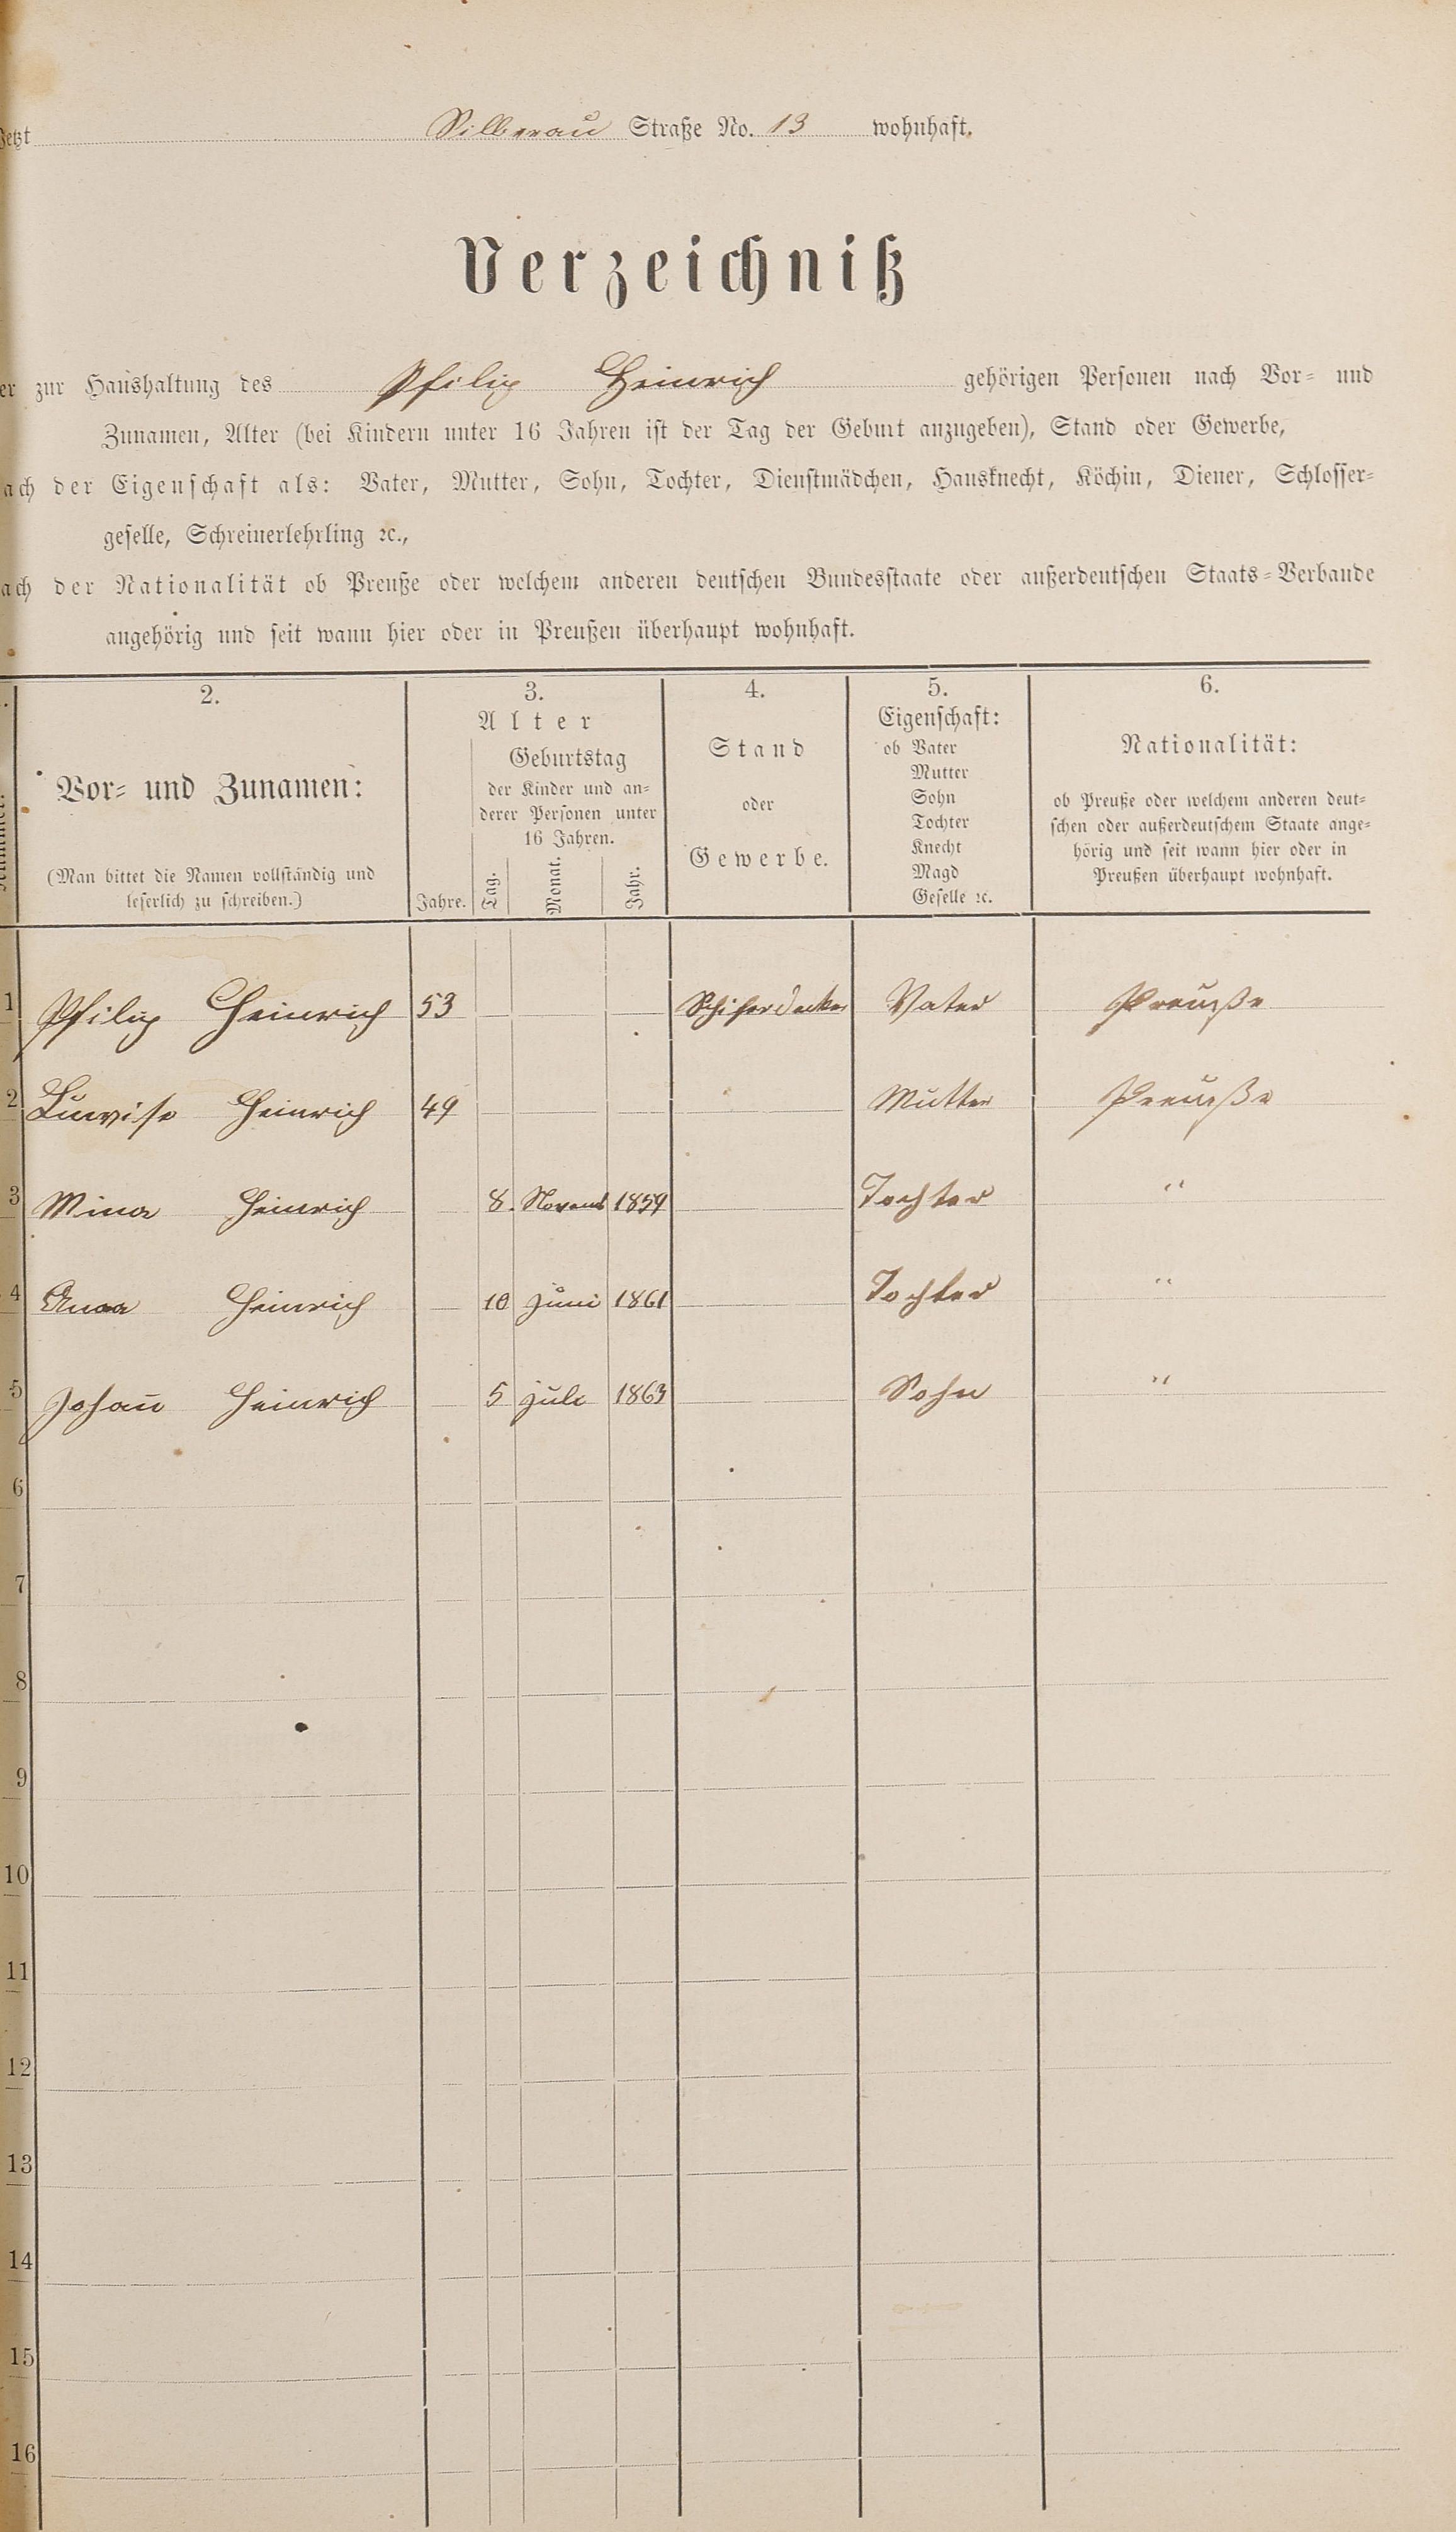 Jetzt Silberau Straße No. 13 wohnhaft.
Verzeichniß
er zur Haushaltung des Philip Heinrich gehörigen Personen nach Vor- und
Zunamen, Alter (bei Kindern unter 16 Jahren ist der Tag der Geburt anzugeben), Stand oder Gewerbe,
ach der Eigenschaft als: Vater, Mutter, Sohn, Tochter, Dienstmädchen, Hausknecht, Köchin, Diener, Schlosser-
geselle, Schreinerlehrling ꝛc.,
ach der Nationalität ob Preuße oder welchem anderen deutschen Bundesstaate oder außerdeutschen Staats-Verbande
angehörig und seit wann hier oder in Preußen überhaupt wohnhaft.
2. 3. 4. 5. 6.
Vor- und Zunamen:
(Man bittet die Namen vollständig und
leserlich zu schreiben.)
Alter
Geburtstag
der Kinder und an-
derer Personen unter
16 Jahren.
Jahre. Tag. Monat. Jahr.
Stand
oder
Gewerbe.
Eigenschaft:
ob Vater
Mutter
Sohn
Tochter
Knecht
Magd
Geselle ꝛc.
Nationalität:
ob Preuße oder welchem anderen deut-
schen oder außerdeutschem Staate ange-
hörig und seit wann hier oder in
Preußen überhaupt wohnhaft.
1 Philip Heinrich 53 Schiferdecker Vater Preuße
2 Luwise Heinrich 49 Mutter Preuße
3 Mina Heinrich 8. Novemb 1859 Tochter "
4 Anna Heinrich 10 Juni 1861 Tochter "
5 Johan̄ Heinrich 5 Juli 1863 Sohn "
6
7
8
9
10
11
12
13
14
15
16